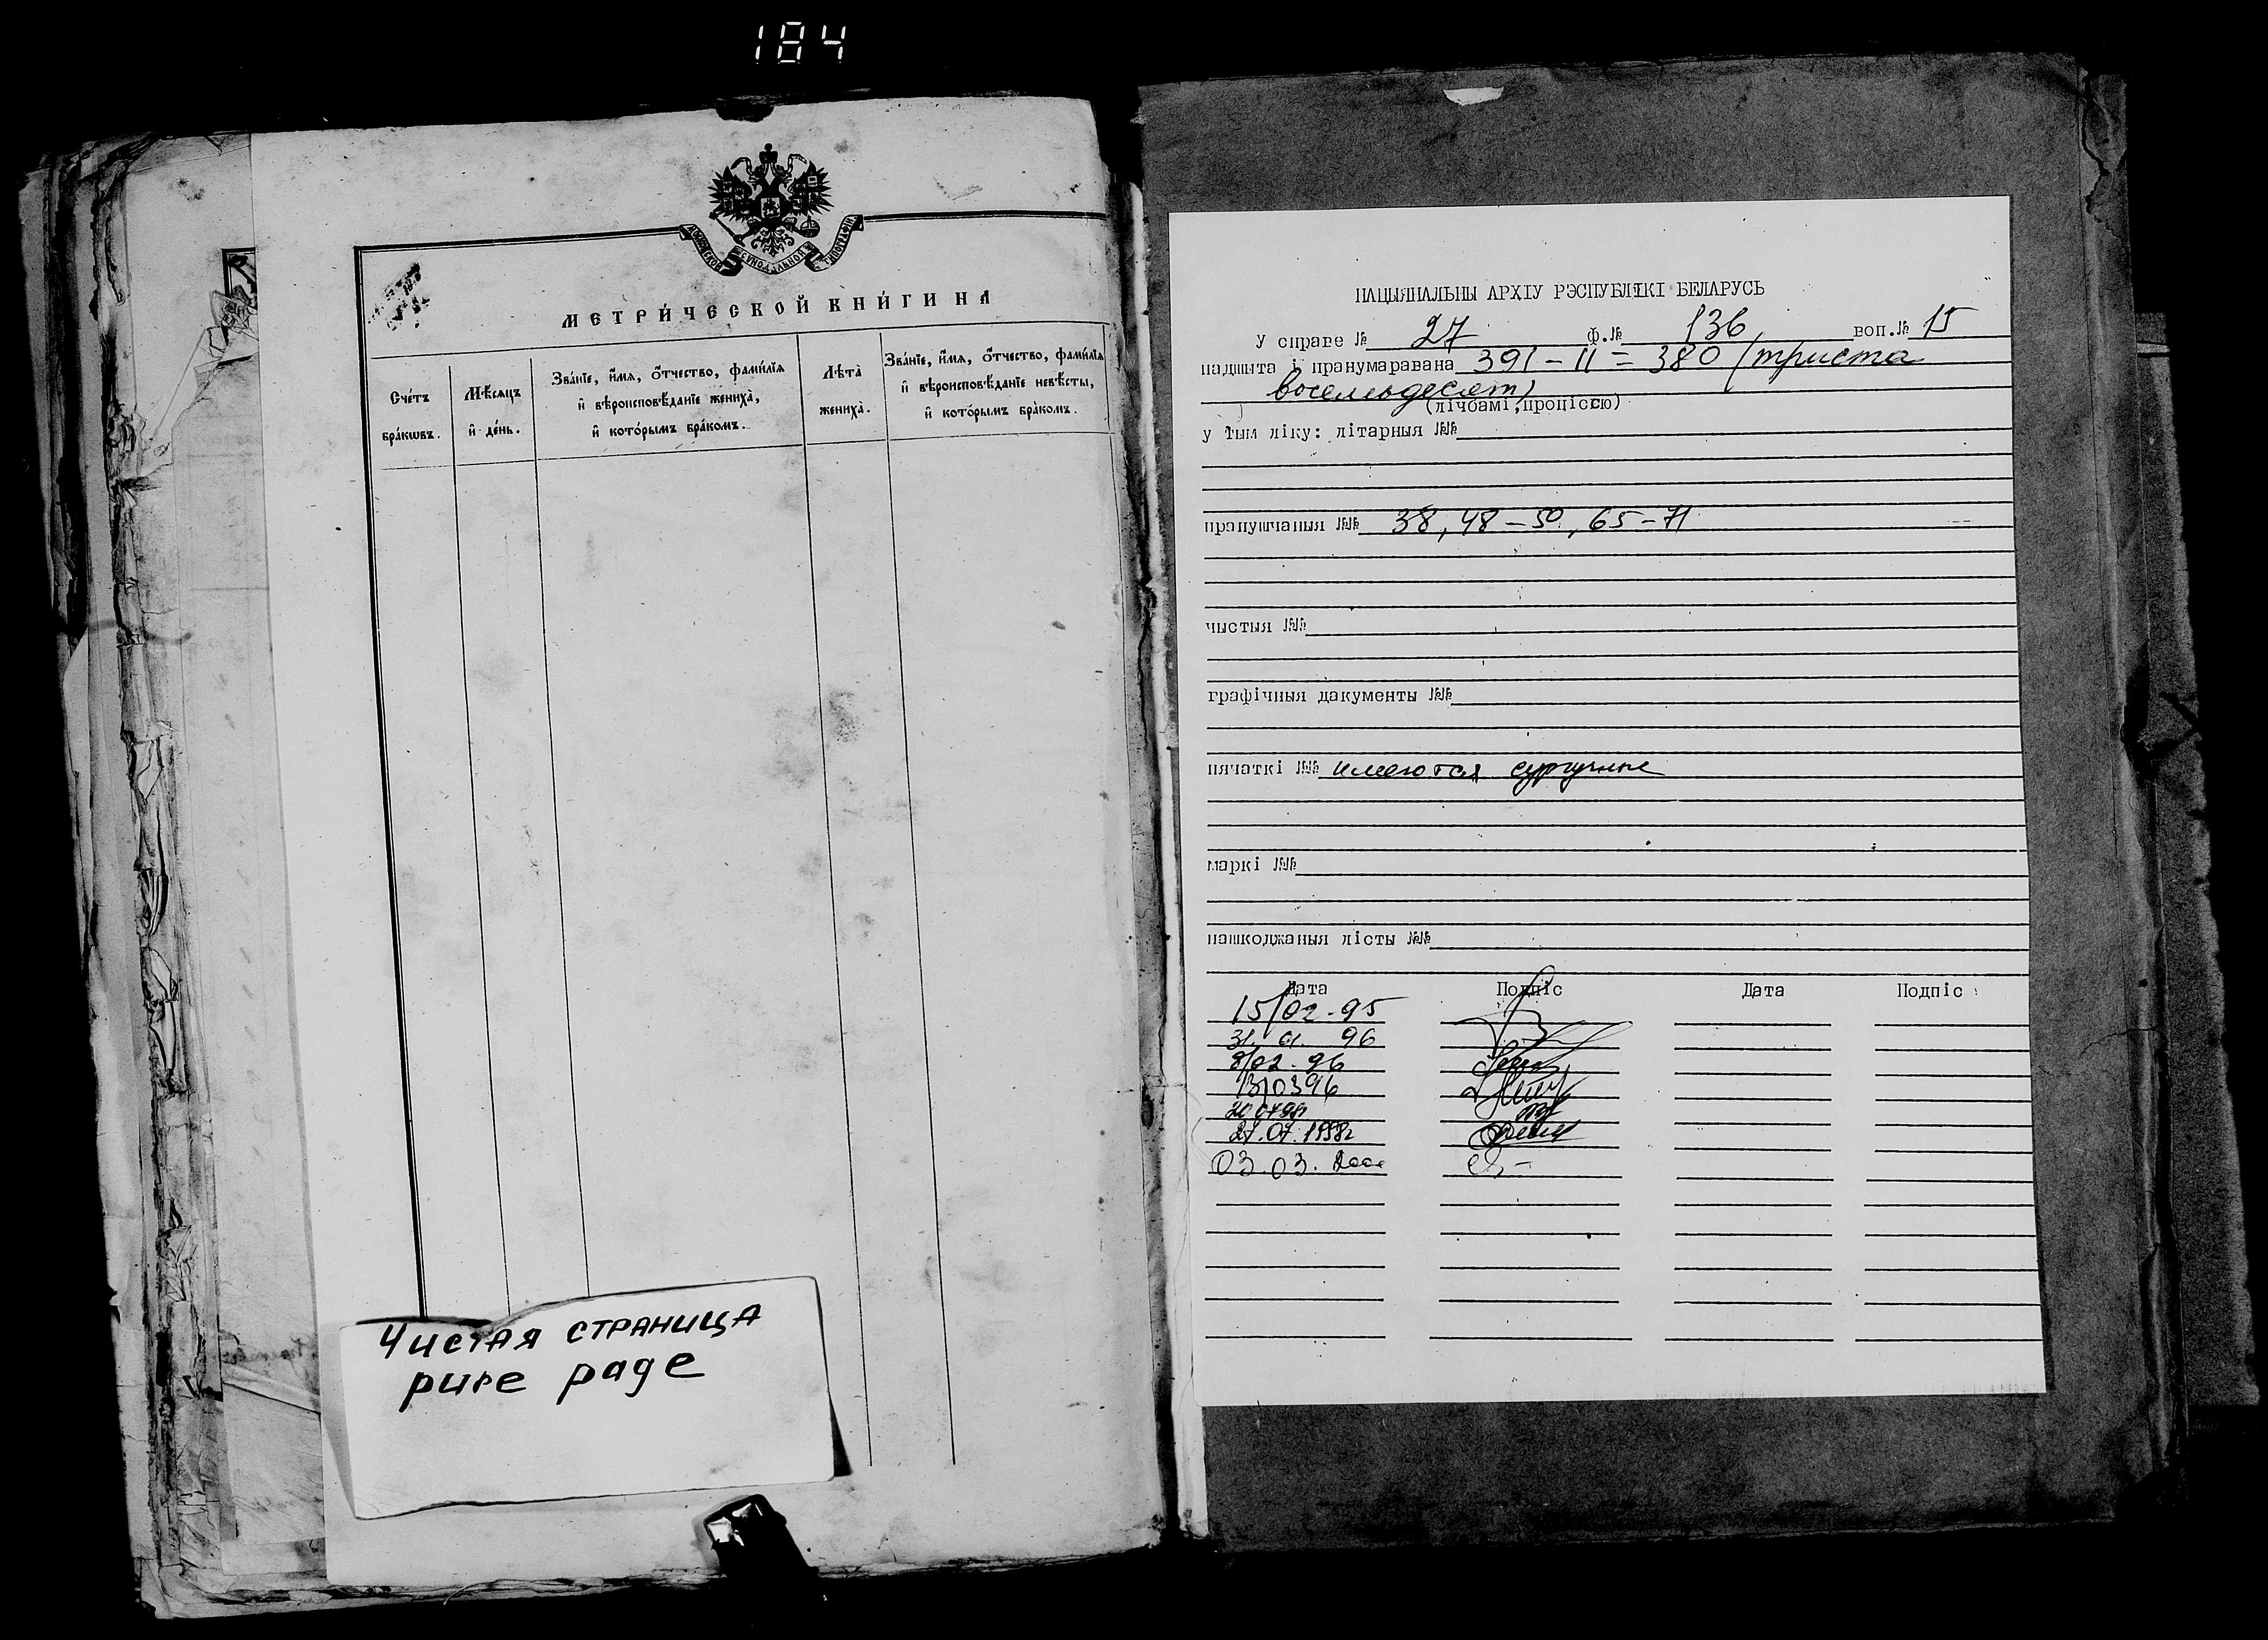 184
МОСКОВСКОЙ СѴНОДАЛЬНОЙ ТИПОГРАФІИ
МЕТРИ́ЧЕСКОЙ КНИ́ГИ НА
Сче́тъ бра́кѡвъ.
Мѣ́сяцъ и҆ де́нь.
Зва́нїе, и҆́мѧ, ѻ҆́тчество, фами́лїѧ
и҆ вѣроисповѣ́данїе жениха̀,
и҆ кото́рымъ бра́комъ.
Лѣ́та̀ жениха̀.
Зва́нїе, и҆́мѧ, ѻ҆́тчество, фами́лїѧ
и҆ вѣроисповѣ́данїе невѣ́сты,
и҆ кото́рымъ бра́комъ.
Чистая страница
pure page
НАЦЫЯНАЛЬНЫ АРХІУ РЭСПУБЛІКІ БЕЛАРУСЬ
У справе № 27 ф.№ 136 воп.№ 15
падшыта і пранумаравана 391-11=380 (триста
восемьдесят)
(лічбамі, пропіссю)
у тым ліку: літарныя №№
прапушчаныя №№ 38, 48-50, 65-71
чыстыя №№
графічныя дакументы №№
пячаткі №№ имеются сургучные
маркі №№
пашкоджаныя лісты №№
Дата Подпіс Дата Подпіс
15/02-95
31. 01. 96
8/02-96
13/0396
27.07.1998г
03.03.2000